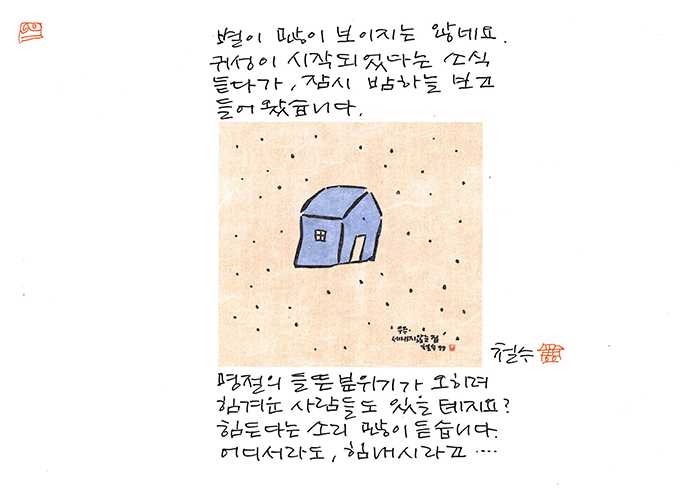 별이 많이 보이지는 않네요.
귀성이 시작되었다는 소식
듣다가, 잠시 밤하늘 보고
들어왔습니다.
'우주.
세내지않는 집'
철수 97
철수
명절의 들뜬 분위기가 오히려
힘겨운 사람들도 있을 테지요?
힘든다는 소리 많이 듣습니다.
어디서라도, 힘내시라고 ....